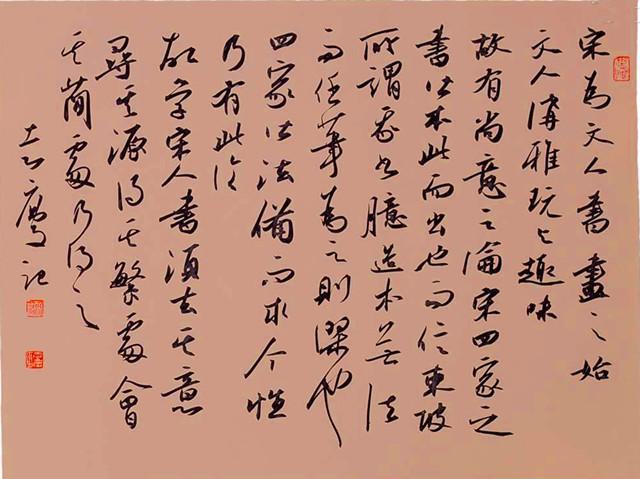 宋为文人書畫之始
文人讲雅玩与趣味
故有尚意之論宋四家之
書法本此而出也而信東坡
所謂我书臆造本无法
而任筆为之則謬也
四家法備而求个性
乃有此
故学宋人書須去其意
尋其源得其繁處會
其簡處乃得之
廬记